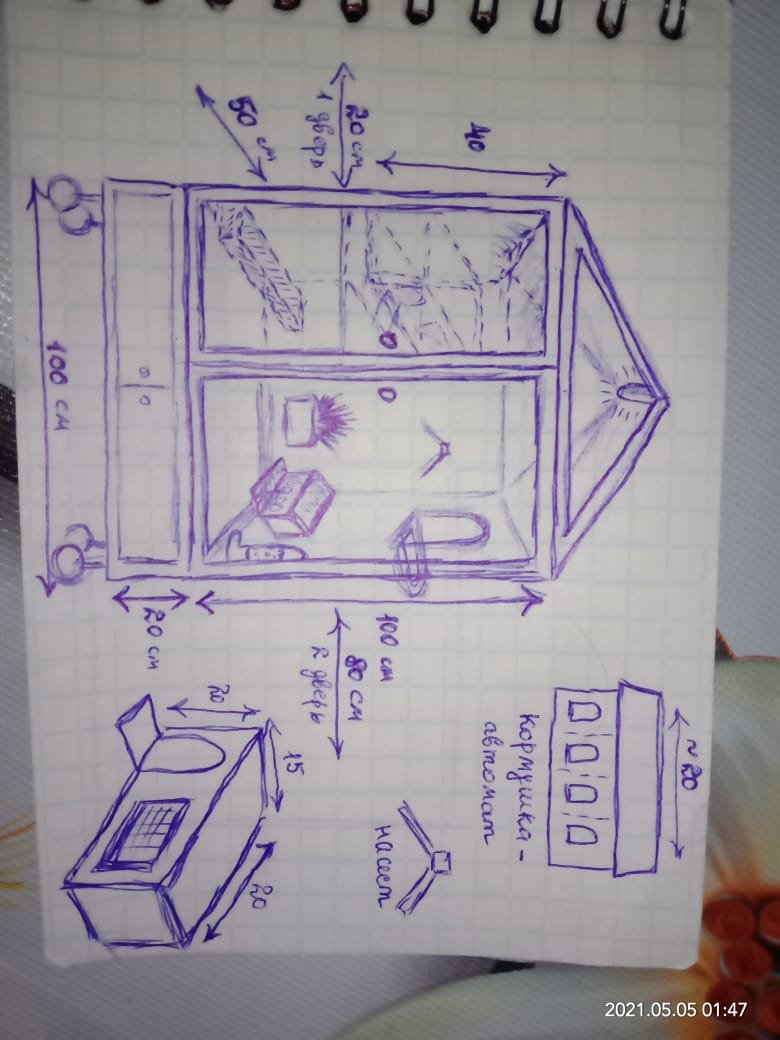 40
50 см
20 см
1 дверь
100 см
20 см
100 см
80 см
2 дверь
~20
Кормушка-
автомат
насест
20
15
20
2021.05.05 01:47